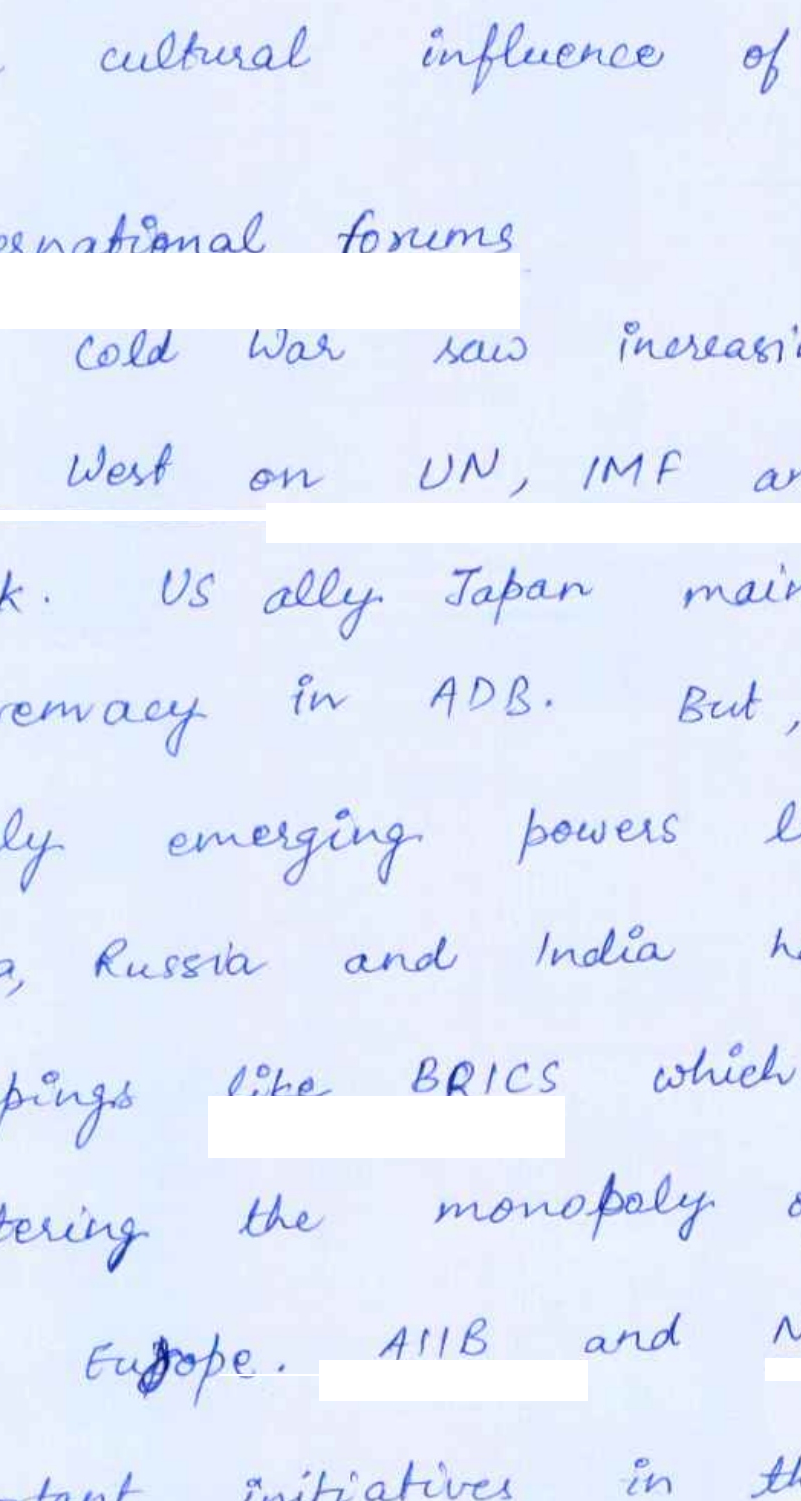 cultural influence of
ernational forums
Cold War saw increasi
West on UN, IMF an
k. US ally Japan main
remacy in ADB. But,
ly emerging powers l
a, Russia and India ha
pings like BRICS which
tering the monopoly o
Europe. AIIB and N
tant initiatives in th